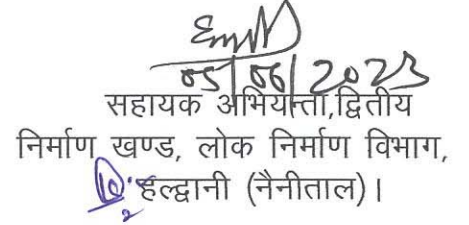 05/06/2023
सहायक अभियन्ता,द्वितीय
निर्माण खण्ड, लोक निर्माण विभाग,
हल्द्वानी (नैनीताल)।